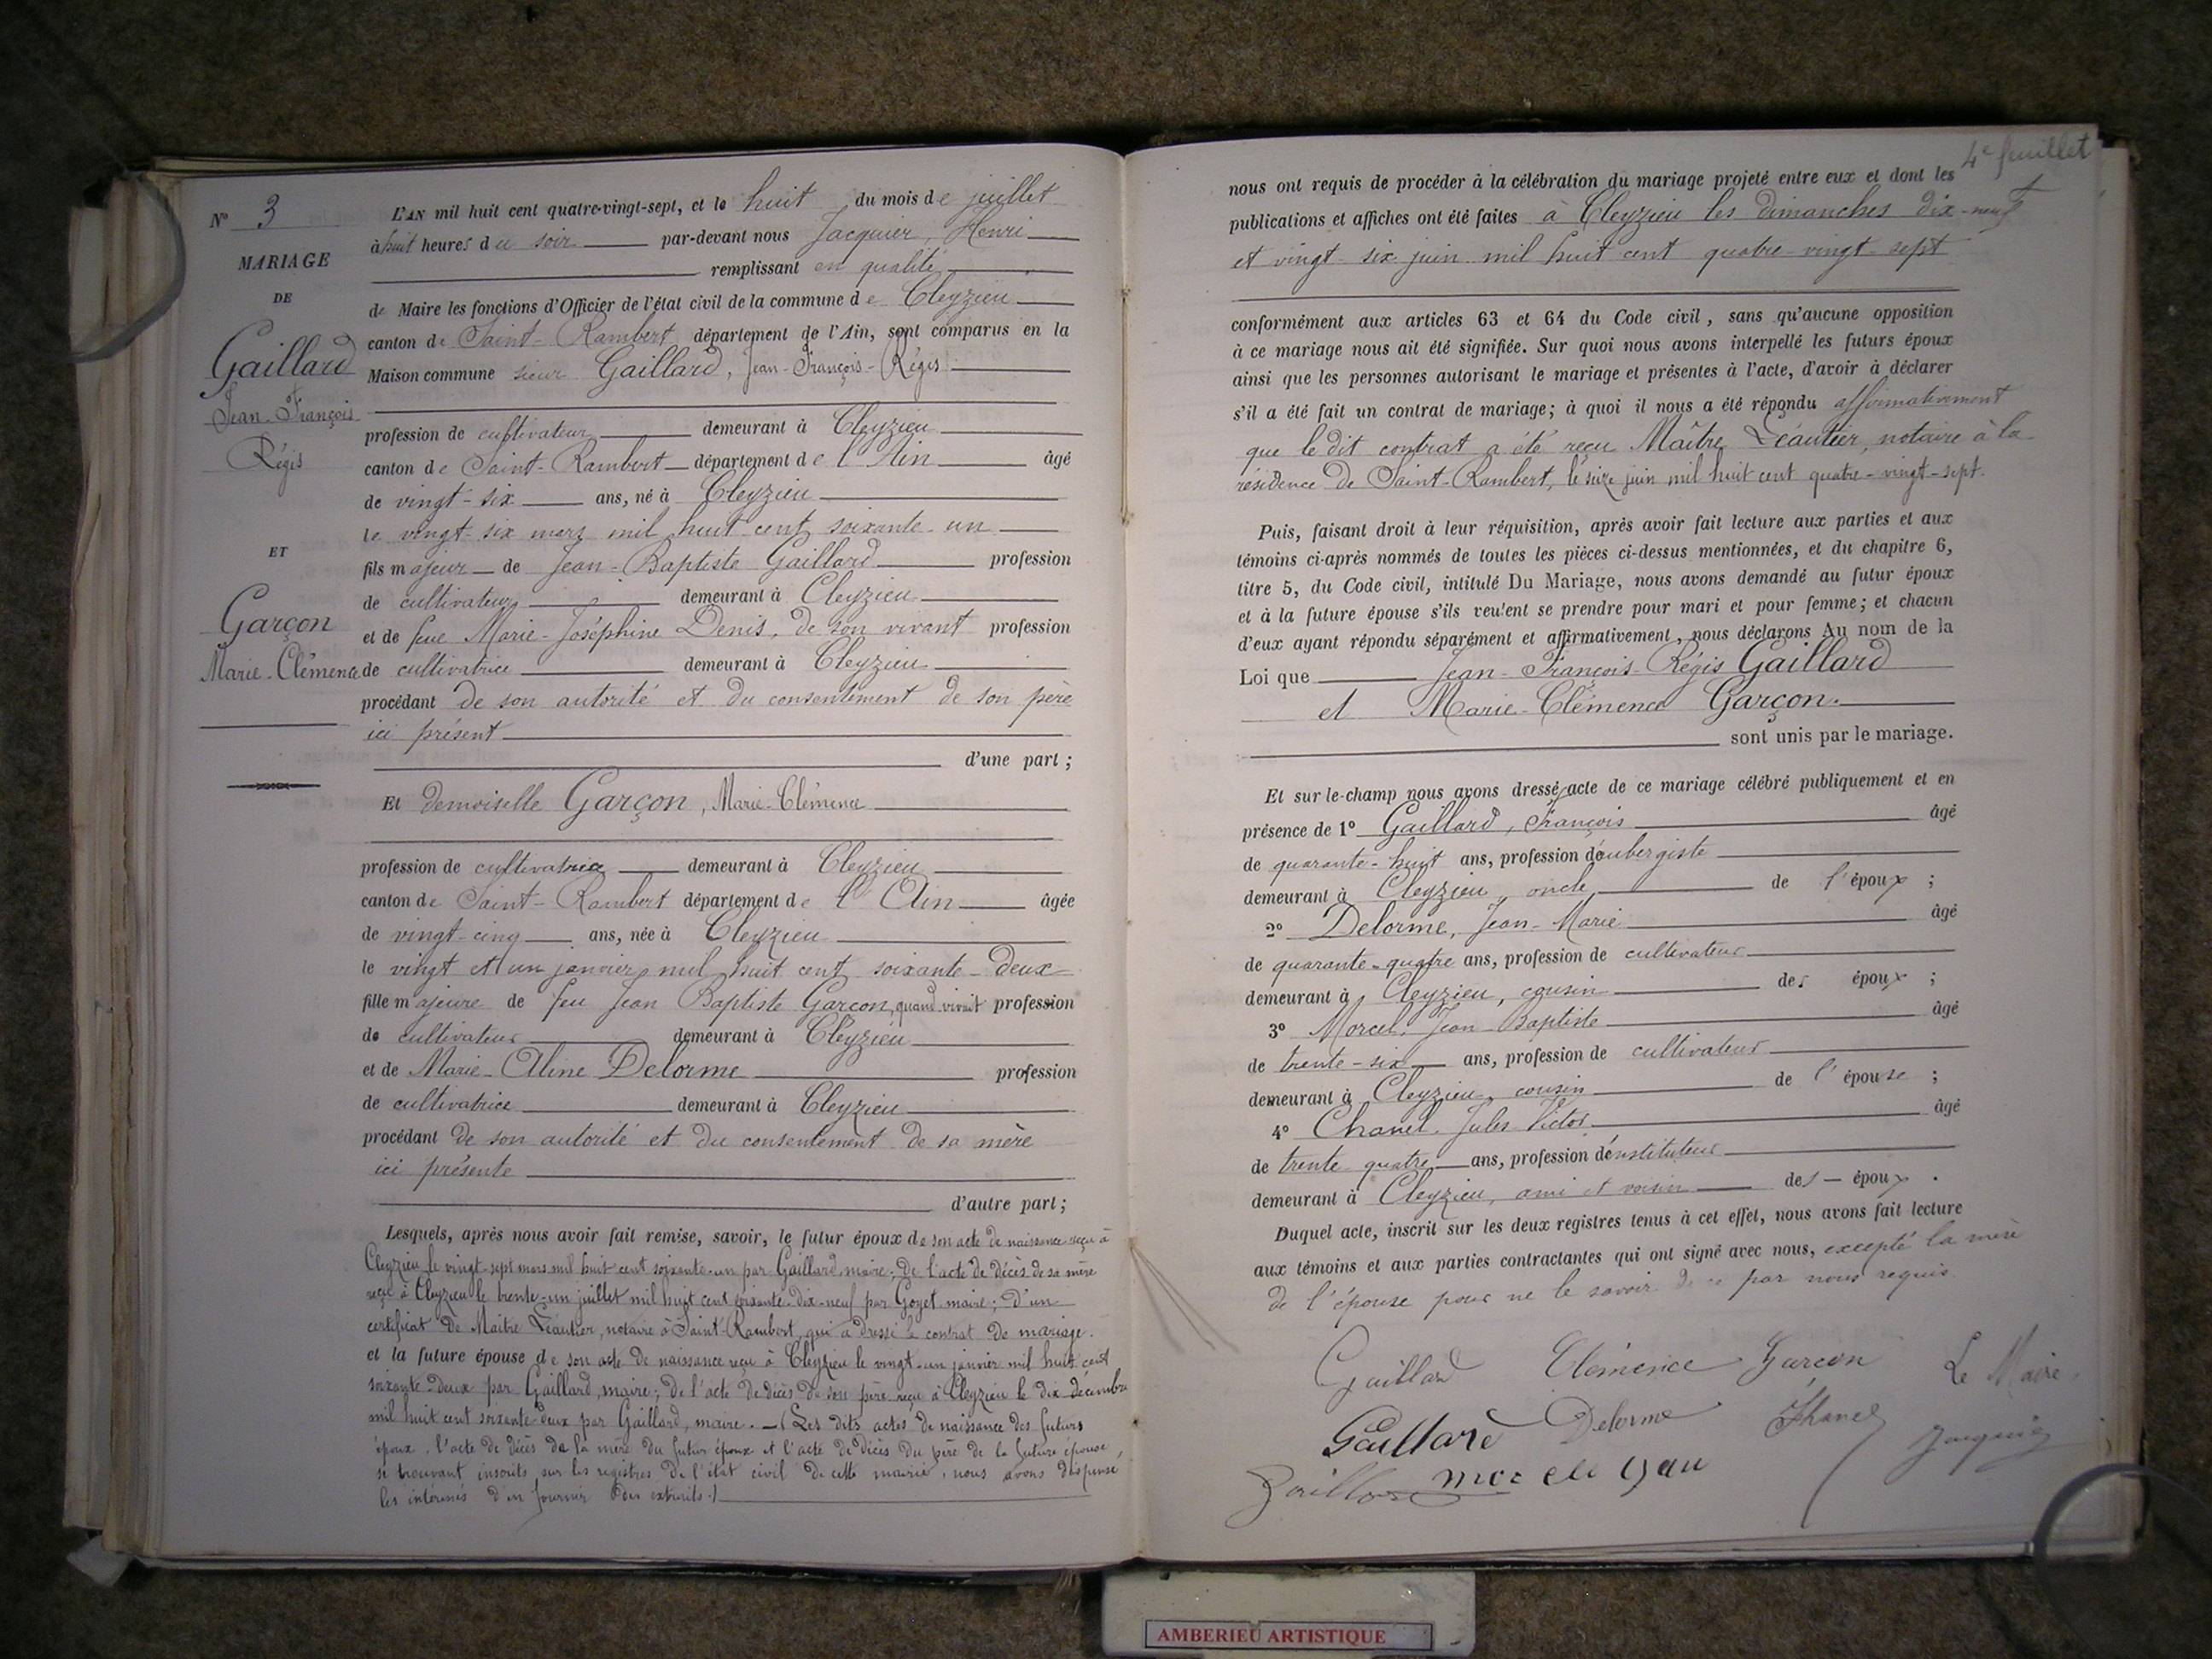 N° 3
MARIAGE
DE
Gaillard
Jean-François
Régis
ET
Garçon
Marie-Clémence
L'AN mil huit cent quatre-vingt-sept, et le huit du mois de juillet
à huit heures du soir par-devant nous Jacquier, Henri
remplissant en qualité
de Maire les fonctions d'Officier de l'état civil de la commune de Cleyzieu
canton de Saint-Rambert département de l'Ain, sont comparus en la
Maison commune sieur Gaillard, Jean-François-(Régis)
profession de cultivateur demeurant à Cleyzieu
canton de Saint-Rambert département de l'Ain âgé
de vingt-six ans, né à Cleyzieu
le vingt-six mars mil huit cent soixante-un
fils majeur de Jean-Baptiste Gaillard profession
de cultivateur demeurant à Cleyzieu
et de feue Marie-Joséphine Denis, de son vivant profession
de cultivatrice demeurant à Cleyzieu
procédant de son autorité et du consentement de son père
ici présent
d'une part ;
Et demoiselle Garçon, Marie-Clémence
profession de cultivatrice demeurant à Cleyzieu
canton de Saint-Rambert département de l'Ain âgée
de vingt-cinq ans, née à Cleyzieu
le vingt et un janvier mil huit cent soixante-deux
fille majeure de feu Jean Baptiste Garçon, quand vivait profession
de cultivateur demeurant à Cleyzieu
et de Marie-Aline Delorme profession
de cultivatrice demeurant à Cleyzieu
procédant de son autorité et du consentement de sa mère
ici présente
d'autre part ;
Lesquels, après nous avoir fait remise, savoir, le futur époux de son acte de naissance reçu à
Cleyzieu le vingt-sept mars mil huit cent soixante-un par Gaillard, maire ; de l'acte de décès de sa mère
reçu à Cleyzieu le trente-un juillet mil huit cent soixante-dix-neuf par Goyet, maire ; d'un
certificat de Maître Léautier, notaire à Saint-Rambert, qui a dressé le contrat de mariage.
et la future épouse de son acte de naissance reçu à Cleyzieu le vingt-un janvier mil huit cent
soixante-deux par Gaillard, maire ; de l'acte de décès de son père reçu à Cleyzieu le dix décembre
mil huit cent soixante-deux par Gaillard, maire. — (Les dits actes de naissance des futurs
époux, l'acte de décès de la mère du futur époux et l'acte de décès du père de la future épouse,
se trouvant inscrits sur les registres de l'état civil de cette mairie, nous avons dispensé
les intéressés d'en fournir des extraits.)
4e feuillet
nous ont requis de procéder à la célébration du mariage projeté entre eux et dont les
publications et affiches ont été faites à Cleyzieu les dimanches dix-neuf
et vingt-six juin mil huit cent quatre-vingt-sept
conformément aux articles 63 et 64 du Code civil, sans qu'aucune opposition
à ce mariage nous ait été signifiée. Sur quoi nous avons interpellé les futurs époux
ainsi que les personnes autorisant le mariage et présentes à l'acte, d'avoir à déclarer
s'il a été fait un contrat de mariage ; à quoi il nous a été répondu affirmativement
que le dit contrat a été reçu Maître Léautier, notaire à la
résidence de Saint-Rambert, le seize juin mil huit cent quatre-vingt-sept.
Puis, faisant droit à leur réquisition, après avoir fait lecture aux parties et aux
témoins ci-après nommés de toutes les pièces ci-dessus mentionnées, et du chapitre 6,
titre 5, du Code civil, intitulé Du Mariage, nous avons demandé au futur époux
et à la future épouse s'ils veulent se prendre pour mari et pour femme ; et chacun
d'eux ayant répondu séparément et affirmativement, nous déclarons Au nom de la
Loi que Jean-François-Régis Gaillard
et Marie-Clémence Garçon.
sont unis par le mariage.
Et sur-le-champ nous avons dressé acte de ce mariage célébré publiquement et en
présence de 1° Gaillard, François âgé
de quarante-huit ans, profession d'aubergiste
demeurant à Cleyzieu, oncle de l'époux ;
2° Delorme, Jean-Marie âgé
de quarante-quatre ans, profession de cultivateur
demeurant à Cleyzieu, cousin des époux ;
3° Morcel, Jean-Baptiste âgé
de trente-six ans, profession de cultivateur
demeurant à Cleyzieu, cousin de l'épouse ;
4° Chanel, Jules Victor âgé
de trente-quatre ans, profession d'instituteur
demeurant à Cleyzieu, ami et voisin des époux.
Duquel acte, inscrit sur les deux registres tenus à cet effet, nous avons fait lecture
aux témoins et aux parties contractantes qui ont signé avec nous, excepté la mère
de l'épouse pour ne le savoir de ce par nous requis.
Gaillard Clémence Garcon Le Maire,
Gaillard Delorme Chanel Jacquier
Gaillard
AMBERIEU ARTISTIQUE